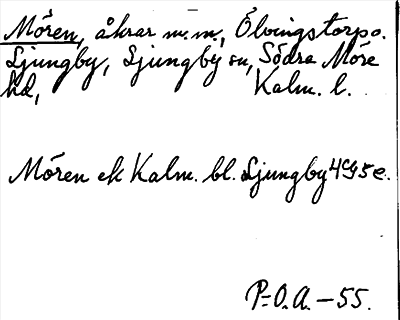 Mören, åkrar m.m., Ölvingstorp o.
Ljungby, Ljungby sn, Södra Möre
hd, Kalm. l.
Mören ek Kalm. bl. Ljungby 4G5e.
P-O.A. - 55.